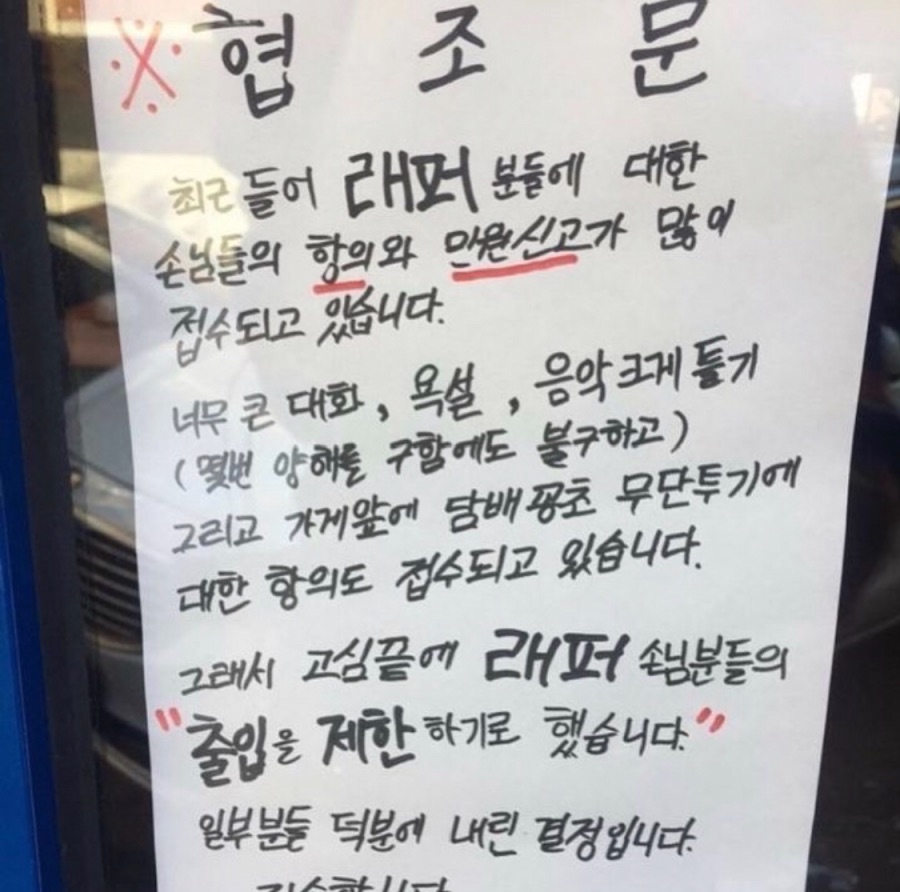 ※ 협 조 문
최근 들어 래퍼 분들에 대한
손님들의 항의와 민원신고가 많이
접수되고 있습니다.
너무 큰 대화, 욕설, 음악크게 틀기
(몇번 양해를 구함에도 불구하고)
그리고 가게앞에 담배꽁초 무단투기에
대한 항의도 접수되고 있습니다.
그래서 고심끝에 래퍼 손님분들의
"출입을 제한하기로 했습니다."
일부분들 덕분에 내린 결정입니다.